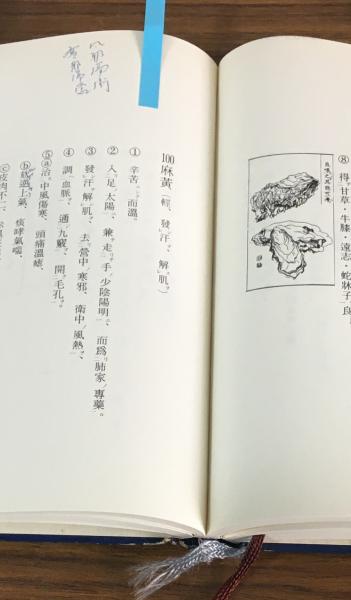 ⑧得甘草・牛膝・遠志・蛇牀子良
100麻黃(輕、發汗、解肌。)
①辛苦而溫。
②入足太陽、兼走手少陰陽明、而爲肺家專藥。
③發汗解肌、去營中寒邪、衛中風熱、
④調血脈、通九竅、開毛孔。
⑤ⓐ治中風傷寒、頭痛溫瘧、
ⓑ欬逆上氣、痰哮氣喘、
ⓒ皮肉不仁、